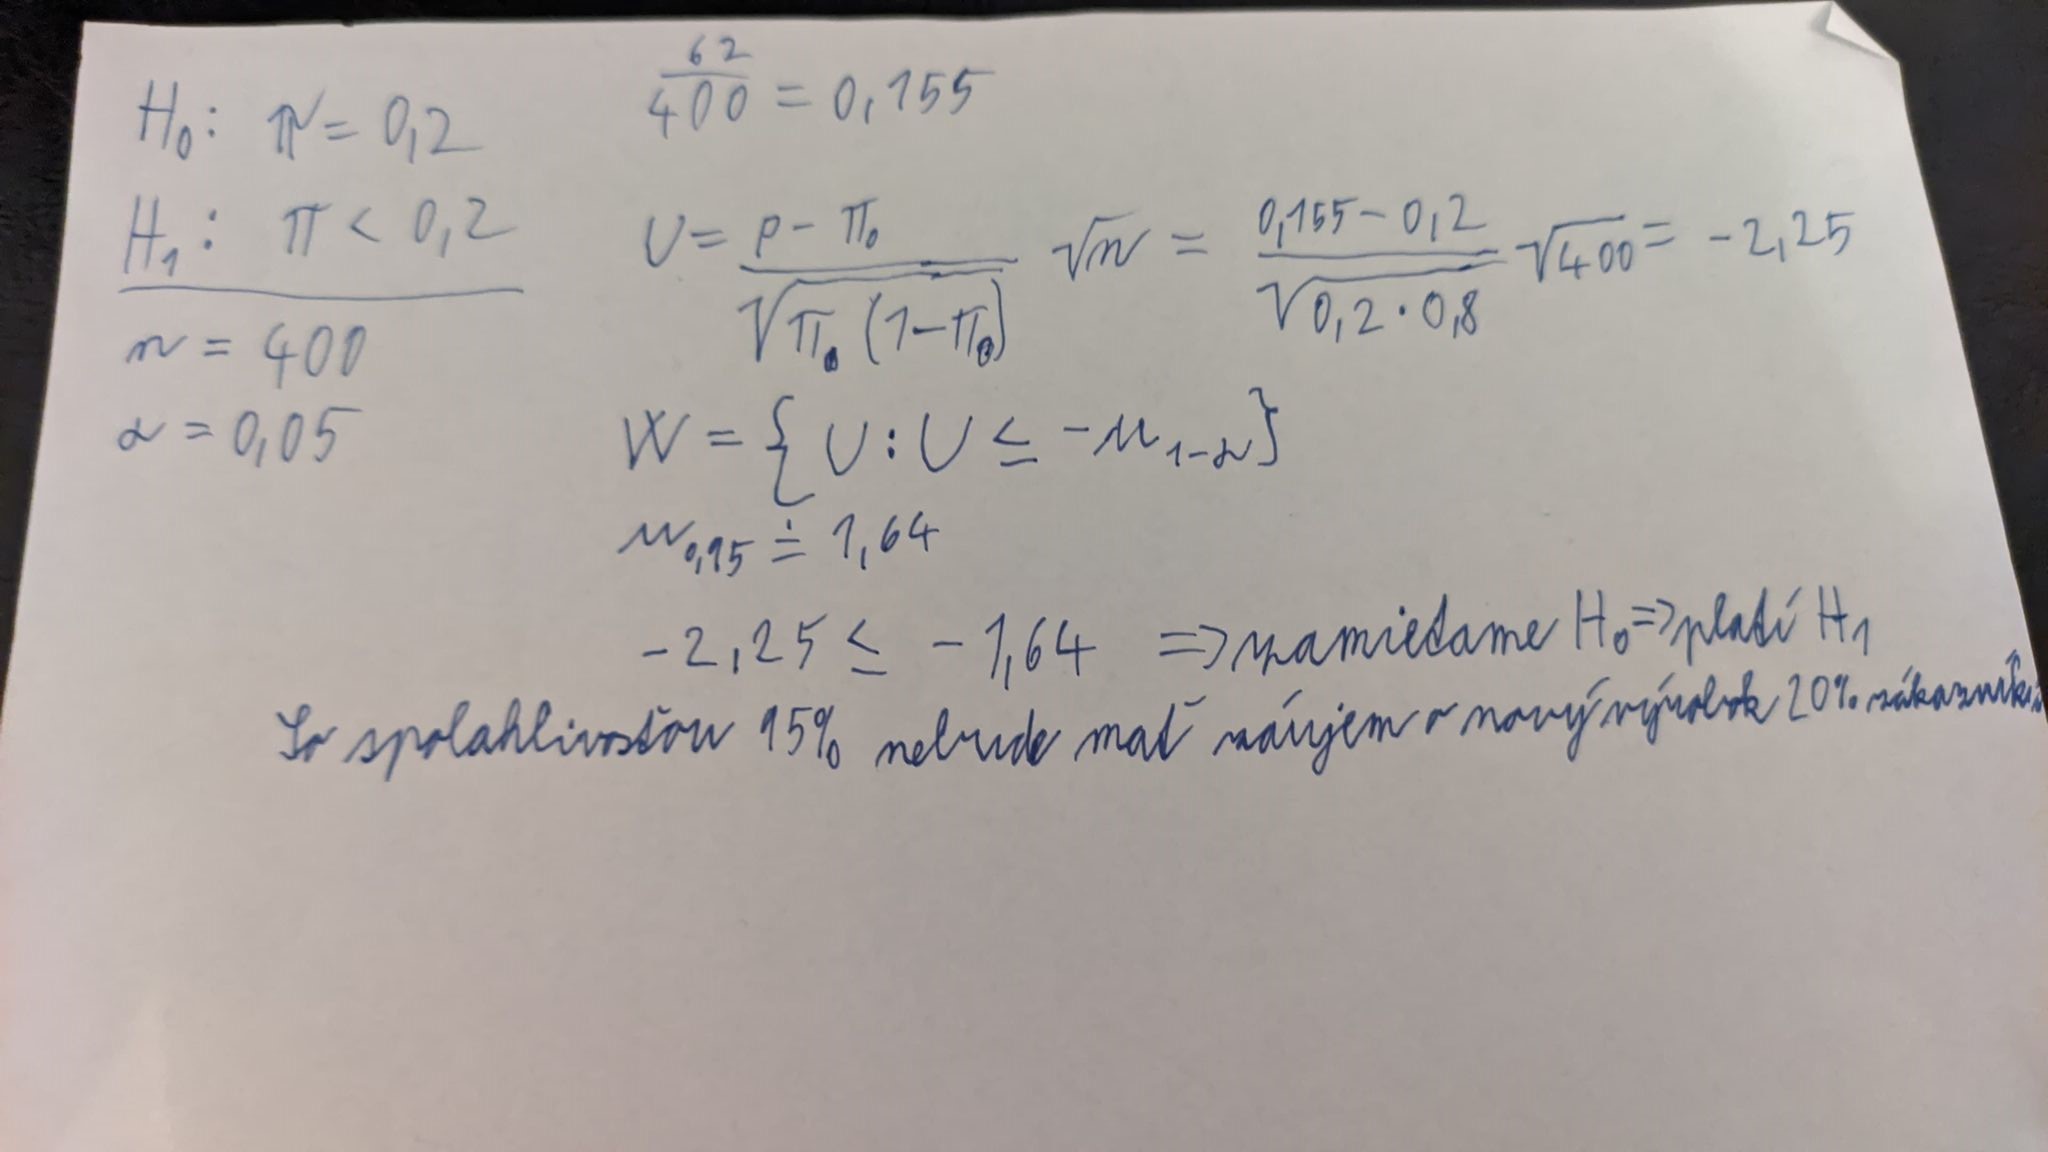 H₀: π = 0,2
H₁: π < 0,2
n = 400
α = 0,05
62/400 = 0,155
U = (p - π₀)/√(π₀(1-π₀)) √n = (0,155 - 0,2)/√(0,2·0,8) √400 = -2,25
W = {U : U ≤ -u₁₋α}
u₀,₉₅ ≐ 1,64
-2,25 ≤ -1,64 => zamietame H₀ => platí H₁
So spolahlivosťou 95% nebude mať záujem o nový výrobok 20% zákazníkov